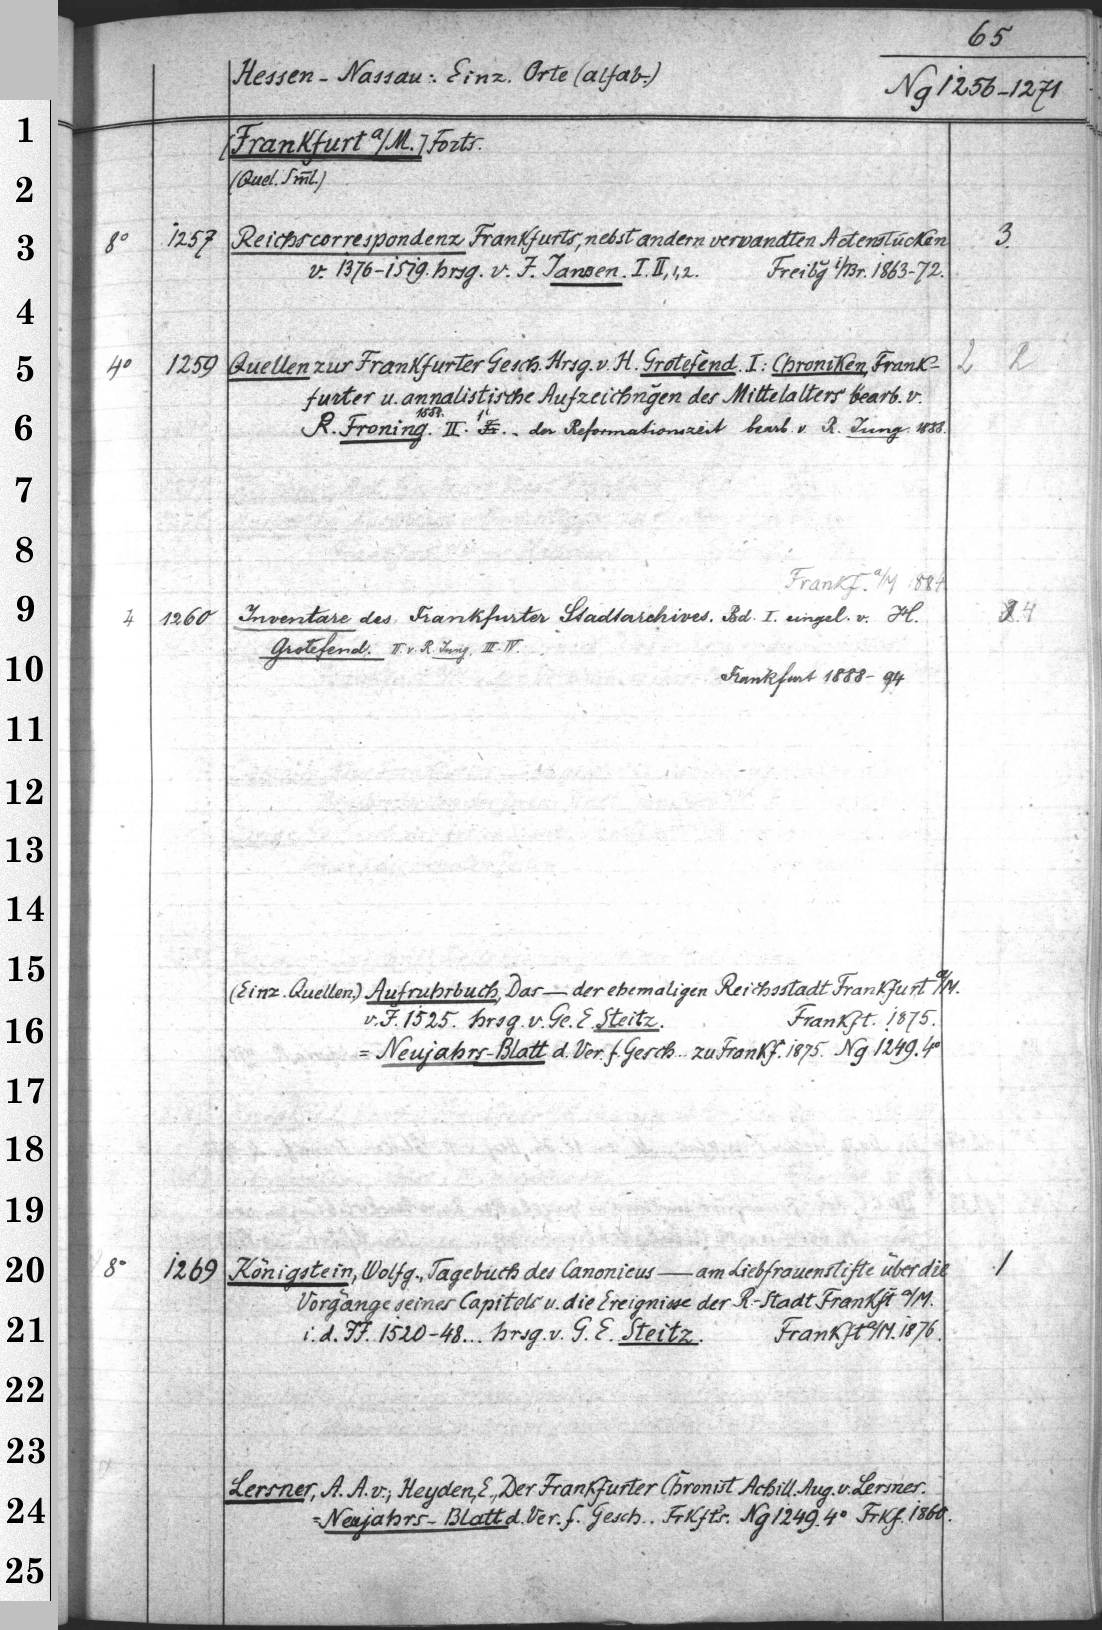 65
Hessen - Nassau: Einz. Orte (alfab.)
Ng 1256-1271
1
[Frankfurt a/M.] Forts.
2
(Quel. Sml.)
3
8° 1257 Reichscorrespondenz Frankfurts, nebst andern verwandten Actenstücken 3.
v. 1376-1519. hrsg. v. J. Jansen. I. II, 1,2. Freibg i/Br. 1863-72.
4
5
4° 1259 Quellen zur Frankfurter Gesch. Hrsg. v. H. Grotefend. I: Chroniken, Frank- 2 2
furter u. annalistische Aufzeichngen des Mittelalters bearb. v.
6
R. Froning. 1884. II. — der Reformationszeit bearb. v. R. Jung. 1888.
7
8
Frankf. a/M 1884
9
4 1260 Inventare des Frankfurter Stadtarchives. Bd. I. eingel. v. H. 4
Grotefend. II. v. R. Jung. III-IV.
10
Frankfurt 1888-94
11
12
13
14
15
(Einz. Quellen) Aufruhrbuch, Das — der ehemaligen Reichsstadt Frankfurt a/M.
16
v. J. 1525. hrsg. v. Ge. E. Steitz. Frankft. 1875.
= Neujahrs-Blatt d. Ver. f. Gesch.. zu Frankf. 1875. Ng 1249. 4°
17
18
19
20
8° 1269 Königstein, Wolfg., Tagebuch des Canonicus — am Liebfrauenstifte über die 1
Vorgänge seines Capitels u. die Ereignisse der R.-Stadt Frankft a/M.
21
i. d. JJ. 1520-48... hrsg. v. G. E. Steitz. Frankft a/M. 1876.
22
23
Lersner, A. A. v.; Heyden, E., Der Frankfurter Chronist Achill. Aug. v. Lersner.
24
= Neujahrs-Blatt d. Ver. f. Gesch.. Frkfts. Ng 1249. 4° Frkf. 1860.
25